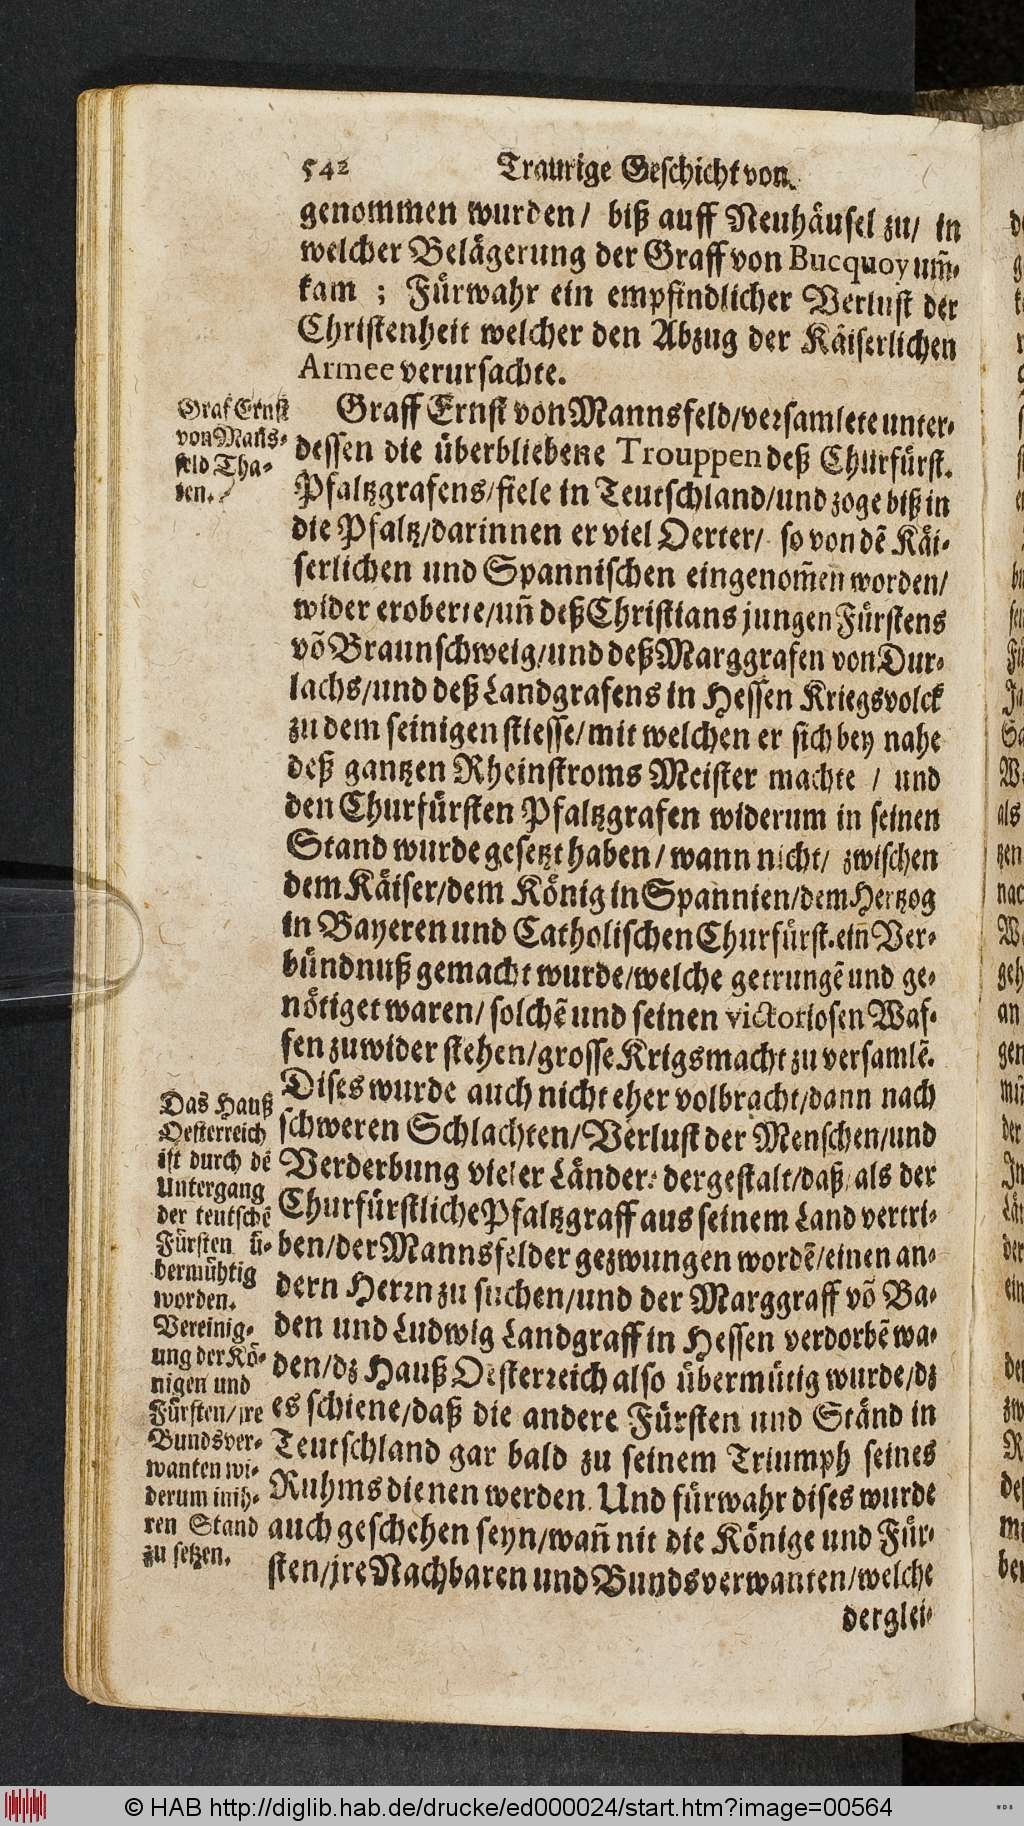 542 Traurige Geschicht von
genommen wurden/ biß auff Neuhäusel zu/ in
welcher Belägerung der Graff von Bucquoy um̃-
kam ; Fürwahr ein empfindlicher Verlust der
Christenheit welcher den Abzug der Käiserlichen
Armee verursachte.
Graf Ernst
von Mañs-
feld Tha-
ten.
Graff Ernst von Mannsfeld/versamlete unter-
dessen die überbliebene Trouppen deß Churfürst.
Pfaltzgrafens/fiele in Teutschland/und zoge biß in
die Pfaltz/darinnen er viel Oerter/ so von dẽ Käi-
serlichen und Spannischen eingenom̃en worden/
wider eroberte/uñ deß Christians jungen Fürstens
võ Braunschweig/und deß Marggrafen von Dur-
lachs/und deß Landgrafens in Hessen Kriegsvolck
zu dem seinigen stiesse/mit welchen er sich bey nahe
deß gantzen Rheinstroms Meister machte / und
den Churfürsten Pfaltzgrafen widerum in seinen
Stand wurde gesetzt haben/ wann nicht/ zwischen
dem Käiser/dem König in Spannien/dem Hertzog
in Bayeren und Catholischen Churfürst. eiñ Ver-
bündnuß gemacht wurde/welche getrungẽ und ge-
nötiget waren/ solchẽ und seinen victoriosen Waf-
fen zuwider stehen/grosse Krigsmacht zu versamlẽ.
Dises wurde auch nicht eher volbracht/dann nach
schweren Schlachten/Verlust der Menschen/und
Verderbung vieler Länder: dergestalt/daß/als der
Churfürstliche Pfaltzgraff aus seinem Land vertri-
ben/der Mannsfelder gezwungen wordẽ/einen an-
dern Herrn zu suchen/und der Marggraff võ Ba-
den und Ludwig Landgraff in Hessen verdorbẽ wa-
den/dz Hauß Oesterreich also übermütig wurde/dz
es schiene/daß die andere Fürsten und Ständ in
Teutschland gar bald zu seinem Triumph seines
Ruhms dienen werden. Und fürwahr dises wurde
auch geschehen seyn/wañ nit die Könige und Für-
sten/jre Nachbaren und Bundsverwanten/welche
derglei-
Das Hauß
Oesterreich
ist durch dẽ
Untergang
der teutschẽ
Fürsten ü-
bermühtig
worden.
Vereinig-
ung der Kö-
nigen und
Fürsten/jre
Bundsver-
wanten wi-
derum in ih-
ren Stand
zu setzen.
© HAB http://diglib.hab.de/drucke/ed000024/start.htm?image=00564